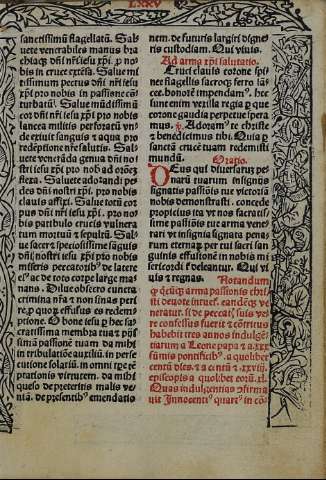 LXXV
sanctissimũ flagellatũ. Sal-
uete venerabiles manus bra
chiaqȝ dñi nr̃i iesu xp̃i. p no
bis in cruce extẽsa. Salue mi
tissimum pectus dñi nr̃i iesu
xp̃i pro nobis in passione con
turbatũ. Salue mũdissimũ
cor dñi nr̃i iesu xp̃i pro nobis
lancea militis perforatũ vn̄
de exiuit sanguis & aqua pro
redemptione nr̃e salutis. Sal
uete venerãda genua dñi no
stri iesu xp̃i pro nob̃ ad orõez
flexa. Saluete adorandi pe-
des dñi nostri iesu xp̃i. pro nobis
clauis affixi. Salue totũ cor
pus dñi nr̃i iesu xp̃i. pro no-
bis patibulo crucis vulnera
tum mortuũ & sepultũ. Sal
ue sacer & speciosissime sãguis
dñi nostri iesu xp̃i pro nobis
miseris peccatorib᾽ de latere
& ac de toto corpe large ma-
nans. Dilue obsecro cuncta
crimina nr̃a & non sinas peri
re. p quoȝ effusus es redem-
ptione. O bone iesu p hec sa-
cratissima membra tua & pũs-
simã passionẽ tuam da mihi
in tribulatiõe auxiliũ. in perse
cutione solatiũ. in omni tꝑe tẽ
ptationis virtutem. da mihi
queso de preteritis malis ve
niã. de presentib᾽ emendatio
nem. de futuris largiri digne-
ris custodiam. Qui viuis.
Ad arma xp̃i salutatio.
Cruci clauis corone spi-
nee flagellis sacroqȝ ferro lã-
cee. honorẽ impendam᾽. hec
sunt enim vexilla regis p que
corone gaudia perpetue ipera
mus. ℣. Adoram᾽ te christe
& benedicimus tibi. Quia p
sanctã crucẽ tuam redemisti
mundũ. Oratio.
Deus qui diuersarũ pe-
narũ tuarum insignia
signatis passiõis tue victoriã
nobis demonstrasti. concede
propicius ita vt nos sacratissi-
sime passiõis tue arma vene-
rari vt insignia signata pena
rum eternaȝ per tui sacri san
guinis effusionẽ in nobis mi
sericordit᾽ deleantur. Qui vi
uis & regnas. Notandum
q̃ q̃cũqȝ arma passionis chri
sti deuote intuet᾽. eandẽqȝ ve
neratur. si de peccati᾽ suis ve-
re confessus fuerit & cõtritus
habebit tres annos indulgẽ
tiarum a Leone papa & a .xxx
sũmis pontificib᾽. a quolibet
centũ dies. & a centũ & .xxviij.
episcopis a quolibet eorũ .xl.
Quas indulgentias cõfirma
uit Innocenti᾽ quart᾽ in cõ